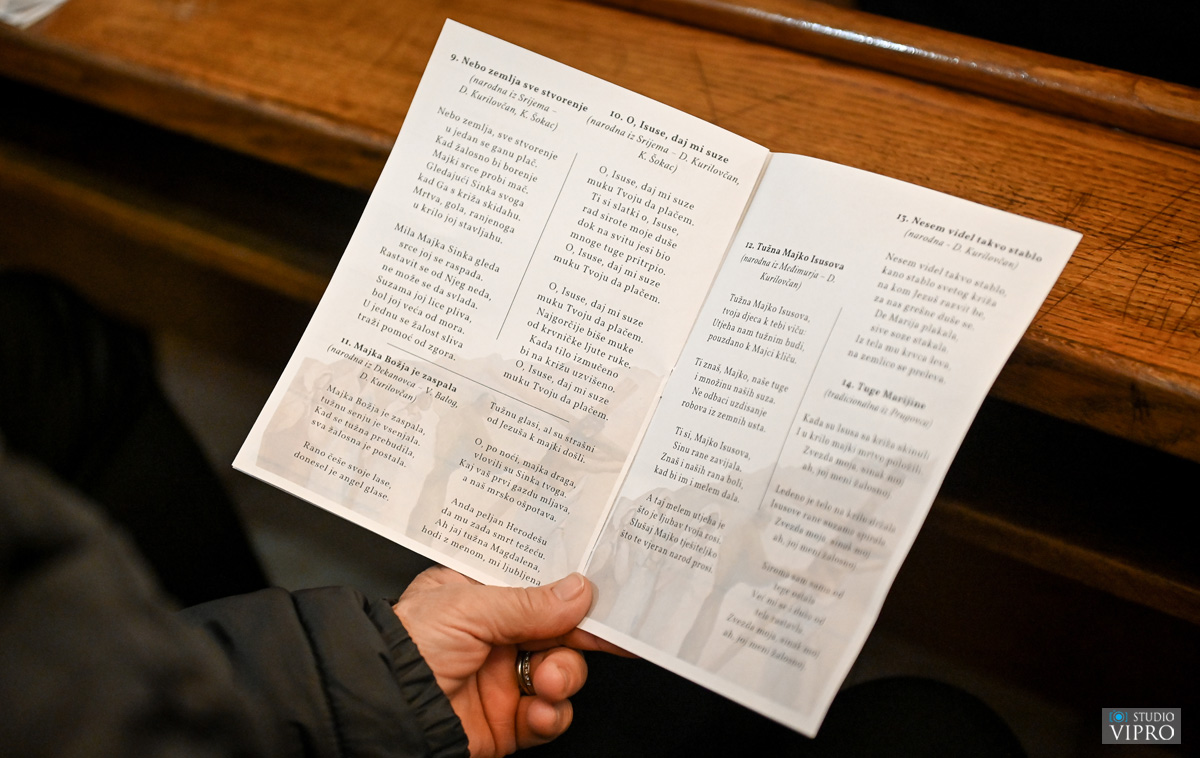 9. Nebo zemlja sve stvorenje
(narodna iz Srijema –
D. Kurilovčan, K. Šokac)
Nebo zemlja, sve stvorenje
u jedan se ganu plač.
Kad žalosno bi borenje
Majki srce probi mač.
Gledajući Sinka svoga
kad Ga s križa skidahu.
Mrtva, gola, ranjenoga
u krilo joj stavljahu.
Mila Majka Sinka gleda
srce joj se raspada.
Rastavit se od Njeg neda,
ne može se da svlada.
Suzama joj lice pliva,
bol joj veća od mora.
U jednu se žalost sliva
traži pomoć od zgora.
10. O, Isuse, daj mi suze
(narodna iz Srijema – D. Kurilovčan,
K. Šokac)
O, Isuse, daj mi suze
muku Tvoju da plačem.
Ti si slatki o, Isuse,
rad sirote moje duše
dok na svitu jesi bio
mnoge tuge pritrpio.
O, Isuse, daj mi suze
muku Tvoju da plačem.
O, Isuse, daj mi suze
muku Tvoju da plačem.
Najgorčije biše muke
od krvničke ljute ruke.
Kada tilo izmučeno
bi na križu uzvišeno.
O, Isuse, daj mi suze
muku Tvoju da plačem.
11. Majka Božja je zaspala
(narodna iz Dekanovca – V. Balog,
D. Kurilovčan)
Majka Božja je zaspala,
tužnu senju je vsenjala.
Kad se tužna prebudila,
sva žalosna je postala.
Rano češe svoje lase,
donesel je angel glase.
Tužnu glasi, al su strašni
od Jezuša k majki došli.
O po noći, majka draga,
vlovili su Sinka tvoga,
Kaj vaš prvi gazdu mljava,
a naš mrsko ošpotava.
Anda peljan Herodešu
da mu zada smrt težeću.
Ah jaj tužna Magdalena,
hodi z menom, mi ljubljena
12. Tužna Majko Isusova
(narodna iz Međimurja – D.
Kurilovčan)
Tužna Majko Isusova,
tvoja djeca k tebi viču:
Utjeha nam tužnim budi,
pouzdano k Majci kliču.
Ti znaš, Majko, naše tuge
i množinu naših suza.
Ne odbaci uzdisanje
robova iz zemnih usta.
Ti si, Majko Isusova,
Sinu rane zavijala,
Znaš i naših rana boli,
kad bi im i melem dala.
A taj melem utjeha je
što je ljubav tvoja rosi.
Slušaj Majko tješiteljko
što te vjeran narod prosi.
13. Nesem videl takvo stablo
(narodna - D. Kurilovčan)
Nesem videl takvo stablo,
kano stablo svetog križa
na kom Jezuš razvit be,
za nas grešne duše se.
De Marija plakala,
sive soze stakala.
Iz tela mu krvca leva,
na zemlico se preleva.
14. Tuge Marijine
(tradicionalna iz Prugovca)
Kada su Isusa sa križa skinuli
I u krilo majki mrtvo položili.
Zvezda moja, sinak moj
ah, joj meni žalosnoj
Ledeno je telo na krilo stiskala
Isusove rane suzama spirala
Zvezda moja, sinak moj
ah, joj meni žalosnoj
Sirota sam sama od
tege ostala
Već mi se i duša od
tela rastavla.
Zvezda moja, sinak moj
ah, joj meni žalosnoj
STUDIO
VIPRO